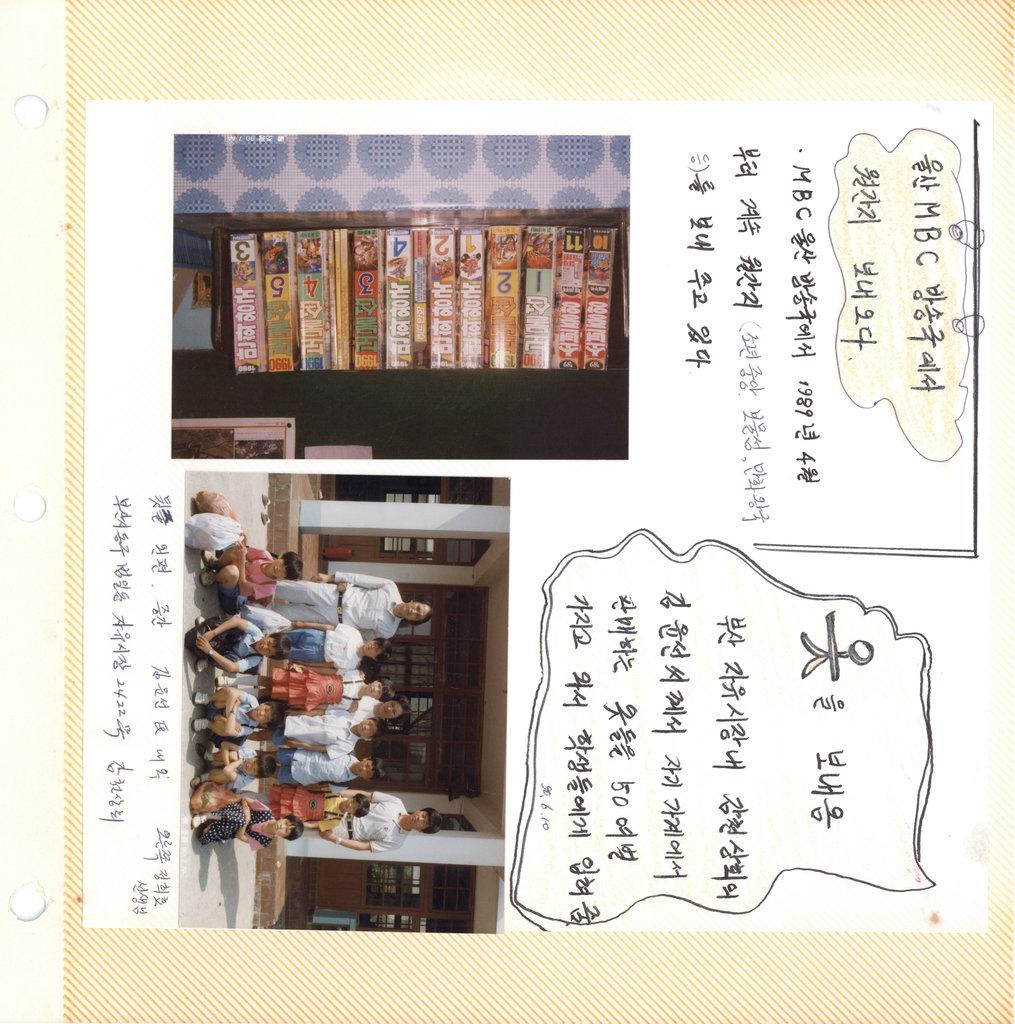 울산 MBC 방송국에서
월간지 보내오다.
· MBC 울산 방송국에서 1989년 4월
부터 계속 월간지 (소년중앙, 보물섬, 만화왕국
등)을 보내 주고 있다.
옷을 보내옴
부산 자유시장내 강원상회의
김윤선씨께서 자기 가게에서
판매하는 옷들을 50여벌
가지고 와서 학생들에게 입혀줌
89. 6. 10
뒷줄 왼편. 중간 김윤선 내외 오른쪽
선생님
부산시 동구 범일동 자유시장 2422호 강원상회
10
11
1
2
1
2
4
3
4
5
3
보물섬
1990